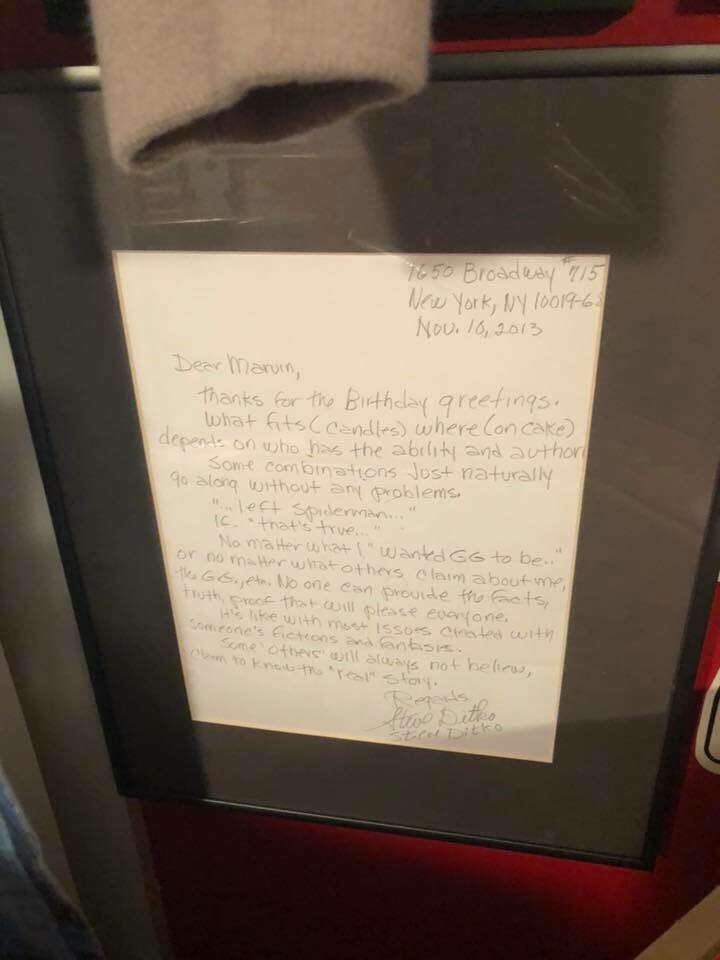 1650 Broadway #715
New York, NY 10019-6
Nov. 16, 2013
Dear Marvin,
thanks for the Birthday greetings.
What fits (candles) where (on cake)
depends on who has the ability and author
Some combinations just naturally
go along without any problems.
"... left Spiderman..."
"that's true..."
No matter what I "wanted GG to be.."
or no matter what others claim about me,
the GG., etc. No one can provide the facts,
truth, proof that will please everyone.
It's like with most issues created with
someone's fictions and fantasies.
Some 'others' will always not believe,
claim to know the "real" story.
Regards
Steve Ditko
Steve Ditko